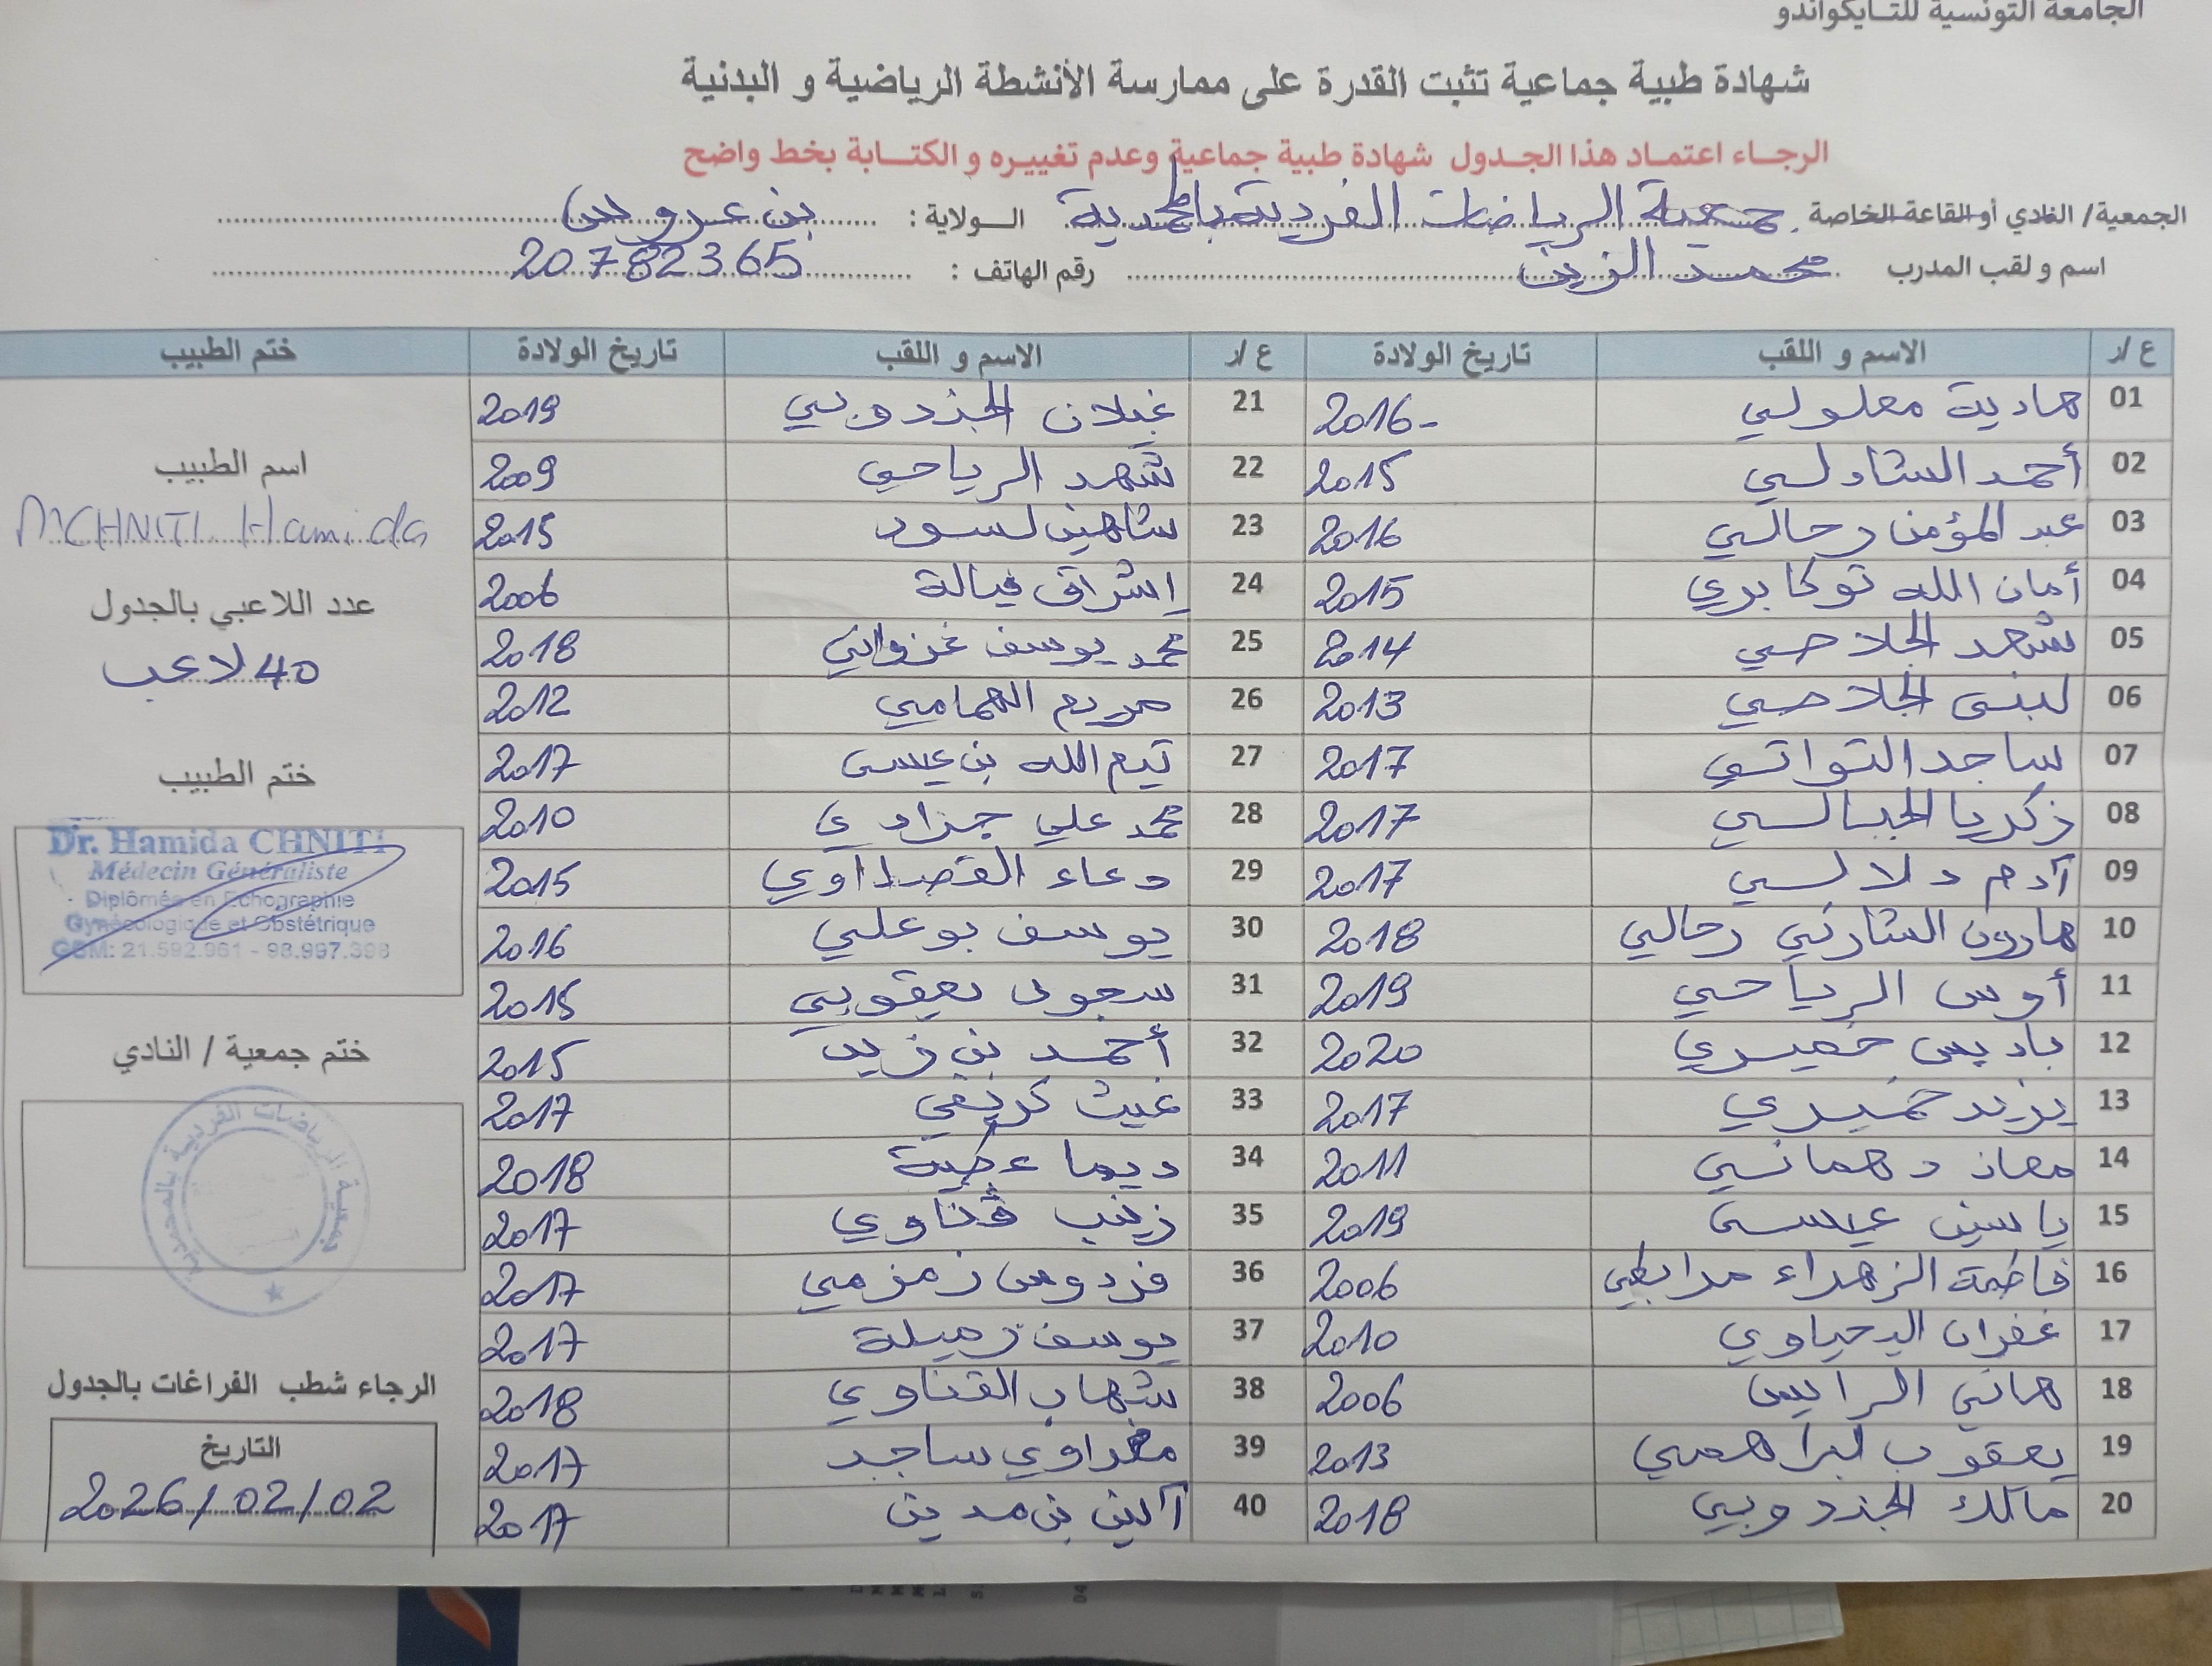 الجامعة التونسية للتايكواندو
شهادة طبية جماعية تثبت القدرة على ممارسة الأنشطة الرياضية و البدنية
الرجاء اعتماد هذا الجدول شهادة طبية جماعية وعدم تغييره و الكتابة بخط واضح
الجمعية/ النادي أو القاعة الخاصة جمعية الرياضات الفردية بالمحمدية الولاية : بن عروس
اسم و لقب المدرب محمد الزين رقم الهاتف : 20782365
ع /ر الاسم و اللقب تاريخ الولادة ع /ر الاسم و اللقب تاريخ الولادة ختم الطبيب
01 هادية معلولي 2016- 21 غيلان الجندوبي 2019
02 أحمد الشاذلي 2015 22 شهد الرياحي 2009
03 عبد المؤمن رحالي 2016 23 شاهين لسود 2015
04 أمان الله توكابري 2015 24 إشراق فيالة 2006
05 شهد الجلاصي 2014 25 محمد يوسف غزواني 2018
06 لبنى الجلاصي 2013 26 مريم الهمامي 2012
07 ساجد التواتي 2017 27 تيم الله بن عيسى 2017
08 زكريا الجبالي 2017 28 محمد علي جرادي 2010
09 آدم دلالي 2017 29 دعاء القصداوي 2015
10 هارون الشارني رحالي 2018 30 يوسف بوعلي 2016
11 أوس الرياحي 2019 31 سجود يعقوبي 2015
12 باديس خميري 2020 32 أحمد بن زيد 2015
13 يزيد خميري 2017 33 غيث كريفي 2017
14 معاذ دهماني 2011 34 ديما 2018
15 ياسين عيسى 2019 35 زينب ڤناوي 2017
16 فاطمة الزهراء مرابطي 2006 36 فردوس زمزمي 2017
17 غفران اليحياوي 2010 37 يوسف زميلة 2017
18 هاني الرايس 2006 38 شهاب القناوي 2018
19 يعقوب ابراهمي 2013 39 مغراوي ساجد 2017
20 مالك الجندوبي 2018 40 آلين بن مدين 2017
اسم الطبيب
CHNITI Hamida
عدد اللاعبي بالجدول
40 لاعب
ختم الطبيب
Dr. Hamida CHNITI
Médecin Généraliste
Diplômée en Echographie
Gynécologique et Obstétrique
GSM: 21.592.961 - 98.997.398
ختم جمعية / النادي
جمعية الرياضات الفردية بالمحمدية
الرجاء شطب الفراغات بالجدول
التاريخ
2026/02/02